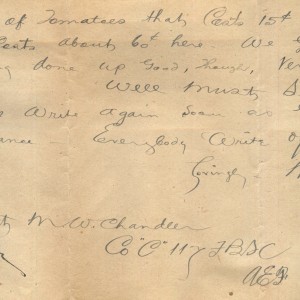 of Tomatoes that Costs 15¢
Costs about 60¢ here. We
done up Good, Though, Ver
Well Must S
Write again Soon as
ance - Everybody Write
Lovingly -
M. W. Chandler
Co "C" 117 F. B. S. C
A.E.F.